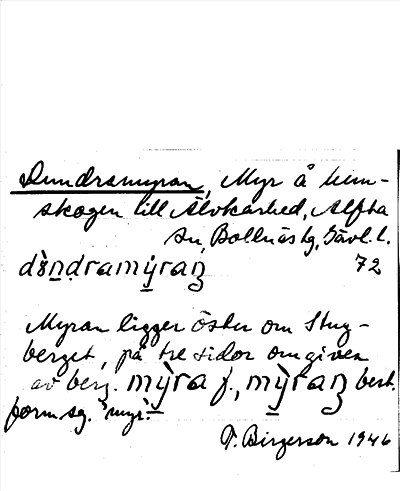 Dundramyran, Myr å hem-
skogen till Älvkarhed, Alfta
sn, Bollnäs tg, Gävl. l.
72
Myran ligger öster om Stug-
berget, på tre sidor omgiven
av berg. mỳra f., mỳraɳ best.
form sg. "myr".
T. Birgerson 1946